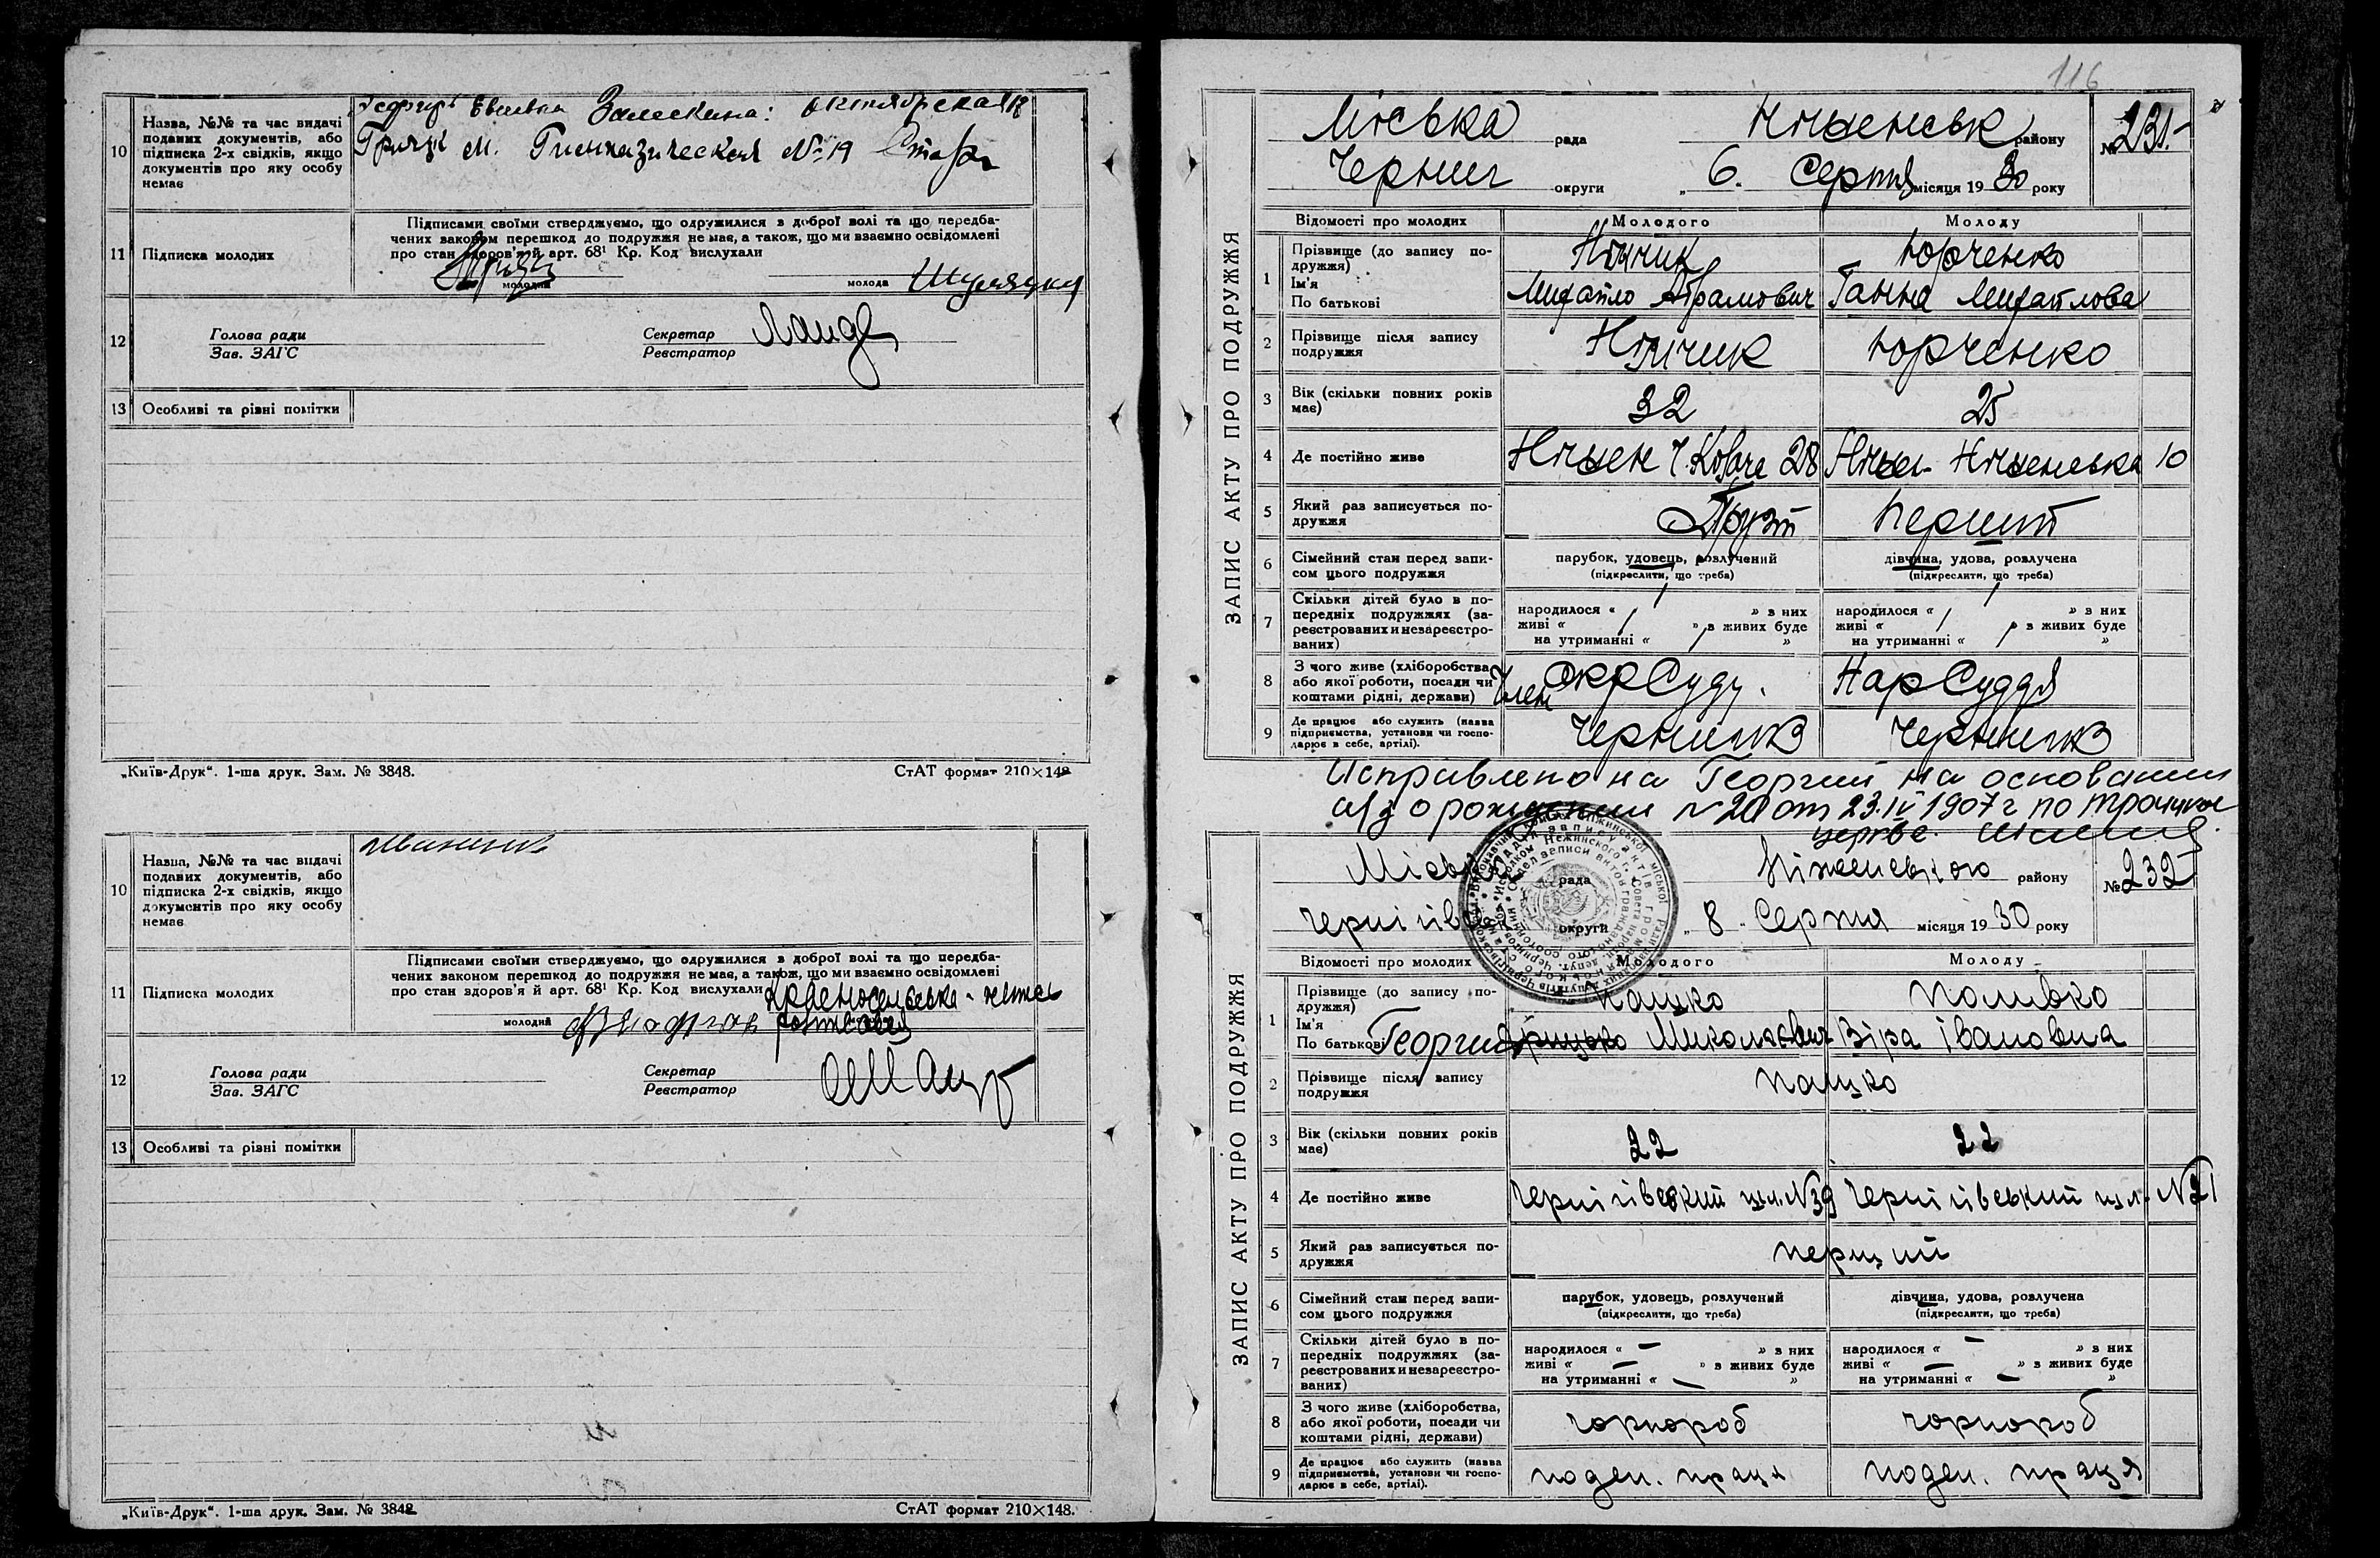 10 Назва, №№ та час видачі
поданих документів, або
підписка 2-х свідків, якщо
документів про яку особу
немає
Октябрская
Грицк М. Гимназическая № 19
11 Підписка молодих
Підписами своїми стверджуємо, що одружилися з доброї волі та що передба-
чених законом перешкод до подружжя не має, а також, що ми взаємно освідомлені
про стан здоров'я й арт. 68¹ Кр. Код вислухали
молодий
молода
12 Голова ради
Зав. ЗАГС
Секретар
Реєстратор
13 Особливі та різні помітки
„Київ-Друк“. 1-ша друк. Зам. № 3848.
СтАТ формат 210×148
10 Назва, №№ та час видачі
поданих документів, або
підписка 2-х свідків, якщо
документів про яку особу
немає
11 Підписка молодих
Підписами своїми стверджуємо, що одружилися з доброї волі та що передба-
чених законом перешкод до подружжя не має, а також, що ми взаємно освідомлені
про стан здоров'я й арт. 68¹ Кр. Код вислухали
молодий
12 Голова ради
Зав. ЗАГС
Секретар
Реєстратор
13 Особливі та різні помітки
„Київ-Друк“. 1-ша друк. Зам. № 3848
СтАТ формат 210×148.
116
ЗАПИС АКТУ ПРО ПОДРУЖЖЯ
Міська рада Ніженськ району № 231
Черниг округи „ 6. Серпня місяця 1930 року
Відомості про молодих Молодого Молоду
1 Прізвище (до запису по-
дружжя) Юрченко
Ім'я
По батькові Михайло Абрамович Ганна Михайлова
2 Прізвище після запису
подружжя Юрченко
3 Вік (скільки повних років
має) 32 25
4 Де постійно живе Ніжен 28 Ніжен Ніженська 10
5 Який раз записується по-
дружжя Другий Перший
6 Сімейний стан перед запи-
сом цього подружжя
парубок, удовець, розлучений дівчина, удова, розлучена
(підкреслити, що треба) (підкреслити, що треба)
7 Скільки дітей було в по-
передніх подружжях (за-
реєстрованих и незареєстро-
ваних)
народилося « » з них народилося « » з них
живі « » з живих буде живі « » з живих буде
на утриманні « » на утриманні « »
8 З чого живе (хліборобства,
або якої роботи, посади чи
коштами рідні, держави) Член ОкрСуду. НарСуддя
9 Де працює або служить (назва
підприємства, установи чи госпо-
дарює в себе, артілі).
Исправлено на Георгий на основании
а/з о рождении N 20 от 23.IV 1907 г по троицкой
церкве.
ЗАПИС АКТУ ПРО ПОДРУЖЖЯ
рада Ніженського району № 232
округи „ 8 Серпня місяця 1930 року
Відомості про молодих Молодого Молоду
1 Прізвище (до запису по-
дружжя) Пацко Поливко
Ім'я
По батькові Георгий Грицько Миколаєвич Віра Івановна
2 Прізвище після запису
подружжя Пацко
3 Вік (скільки повних років
має) 22 22
4 Де постійно живе Чернігівский шл. N 39 Чернігівський шл. N 21
5 Який раз записується по-
дружжя перший
6 Сімейний стан перед запи-
сом цього подружжя
парубок, удовець, розлучений дівчина, удова, розлучена
(підкреслити, що треба) (підкреслити, що треба)
7 Скільки дітей було в по-
передніх подружжях (за-
реєстрованих и незареєстро-
ваних)
народилося « — » з них народилося « — » з них
живі « — » з живих буде живі « — » з живих буде
на утриманні « — » на утриманні « — »
8 З чого живе (хліборобства,
або якої роботи, посади чи
коштами рідні, держави) чорнороб чорнороб
9 Де працює або служить (назва
підприємства, установи чи госпо-
дарює в себе, артілі). поден. праця поден. праця